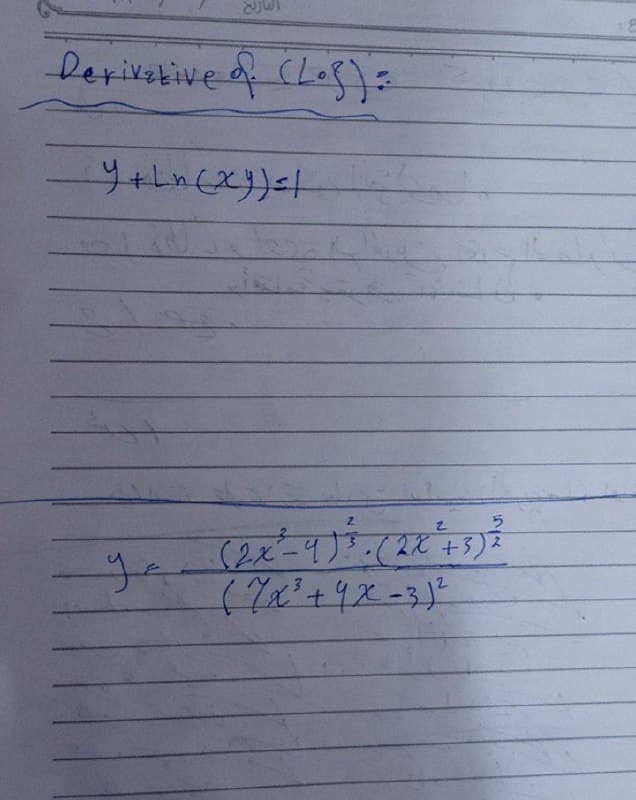 Derivative of (Log):
y + Ln(xy) = 1
y = \frac{(2x^3-4)^{\frac{2}{3}} \cdot (2x^2+3)^{\frac{5}{2}}}{(7x^3+4x-3)^2}